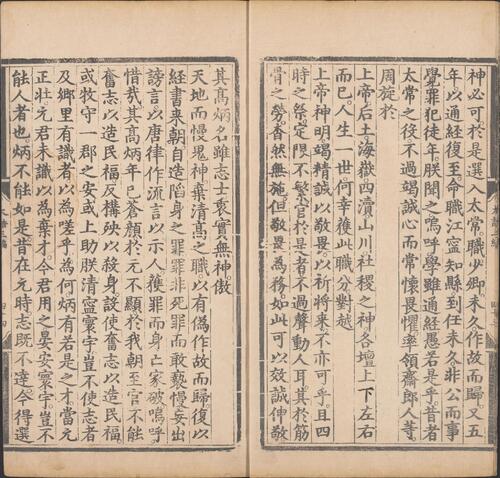 神必可於是選入太常職少卿未久作故而歸又五
年以通經復至命職江寧知縣到任未久非公而事
覺罪犯徒年朕聞之嗚呼學雖通經愚若是乎昔者
太常之役不過竭誠心而常懷畏懼率領齋郎人等
周旋於
上帝后土海嶽四瀆山川社稷之神各壇上下左右
而已人生一世何幸獲此職分對越
上帝神明竭精誠以敬畏以祈將來不亦可乎且四
時之祭定限不繁官於是者不過聲動人耳其於筋
骨之勞杳然無施但敬畏為務如此可以效誠伸敬
其高炳名雖志士褻實無神傲
天地而慢鬼神棄清高之職以有偽作故而歸復以
經書来朝自造陷身之罪罪非死罪而敢褻慢妄出
謗言以唐律作流言以示人獲罪而身亡家破嗚呼
惜哉其高炳年已蒼顏於元不顯於我朝至官不能
奮志以造民福反構殃以殺身設使奮志以造民福
或牧守一郡之安或上助朕清寧寰宇豈不使志者
及鄉里有識者以為嗟乎為何炳有若是之才當元
正壯元君未識以為棄才今君用之晏安寰宇豈不
能人者也炳不能如是昔在元時志既不達今得選